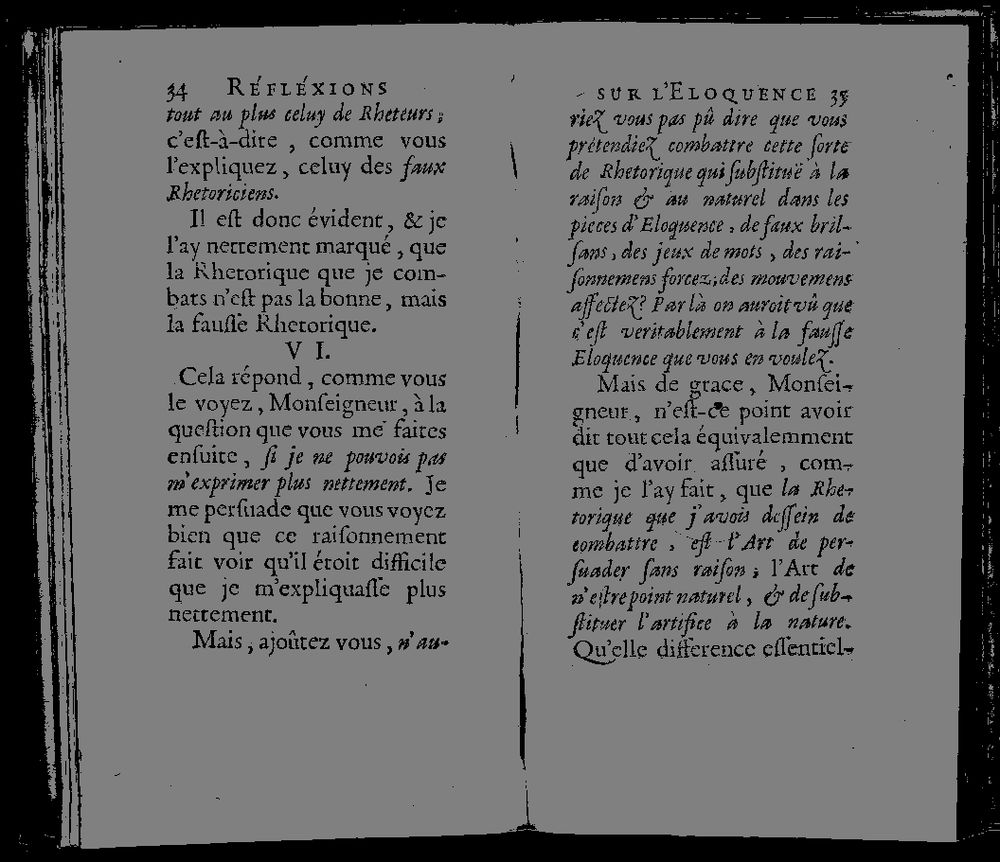 34 RÉFLÉXIONS
tout au plus celuy de Rheteurs;
c'eſt-à-dire , comme vous
l'expliquez, celuy des faux
Rhetoriciens.
Il eſt donc évident, & je
l'ay nettement marqué, que
la Rhetorique que je com-
bats n'eſt pas la bonne, mais
la fauſſe Rhetorique.
V I.
Cela répond, comme vous
le voyez, Monſeigneur, à la
queſtion que vous me faites
enſuite, ſi je ne pouvois pas
m'exprimer plus nettement. Je
me perſuade que vous voyez
bien que ce raiſonnement
fait voir qu'il étoit difficile
que je m'expliquaſſe plus
nettement.
Mais, ajoûtez vous, n'au-
SUR L'ELOQUENCE 35
riez vous pas pû dire que vous
prétendiez combattre cette ſorte
de Rhetorique qui ſubſtituë à la
raiſon & au naturel dans les
pieces d'Eloquence, de faux bril-
lans, des jeux de mots, des rai-
ſonnemens forcez, des mouvemens
affectez? Par là on auroit vû que
c'eſt veritablement à la fauſſe
Eloquence que vous en voulez.
Mais de grace, Monſei-
gneur, n'eſt-ce point avoir
dit tout cela équivalemment
que d'avoir aſſuré , com-
me je l'ay fait, que la Rhe-
torique que j'avois deſſein de
combattre , eſt l'Art de per-
ſuader ſans raiſon; l'Art de
n'eſtre point naturel, & de ſub-
ſtituer l'artifice à la nature.
Qu'elle difference eſſentiel-